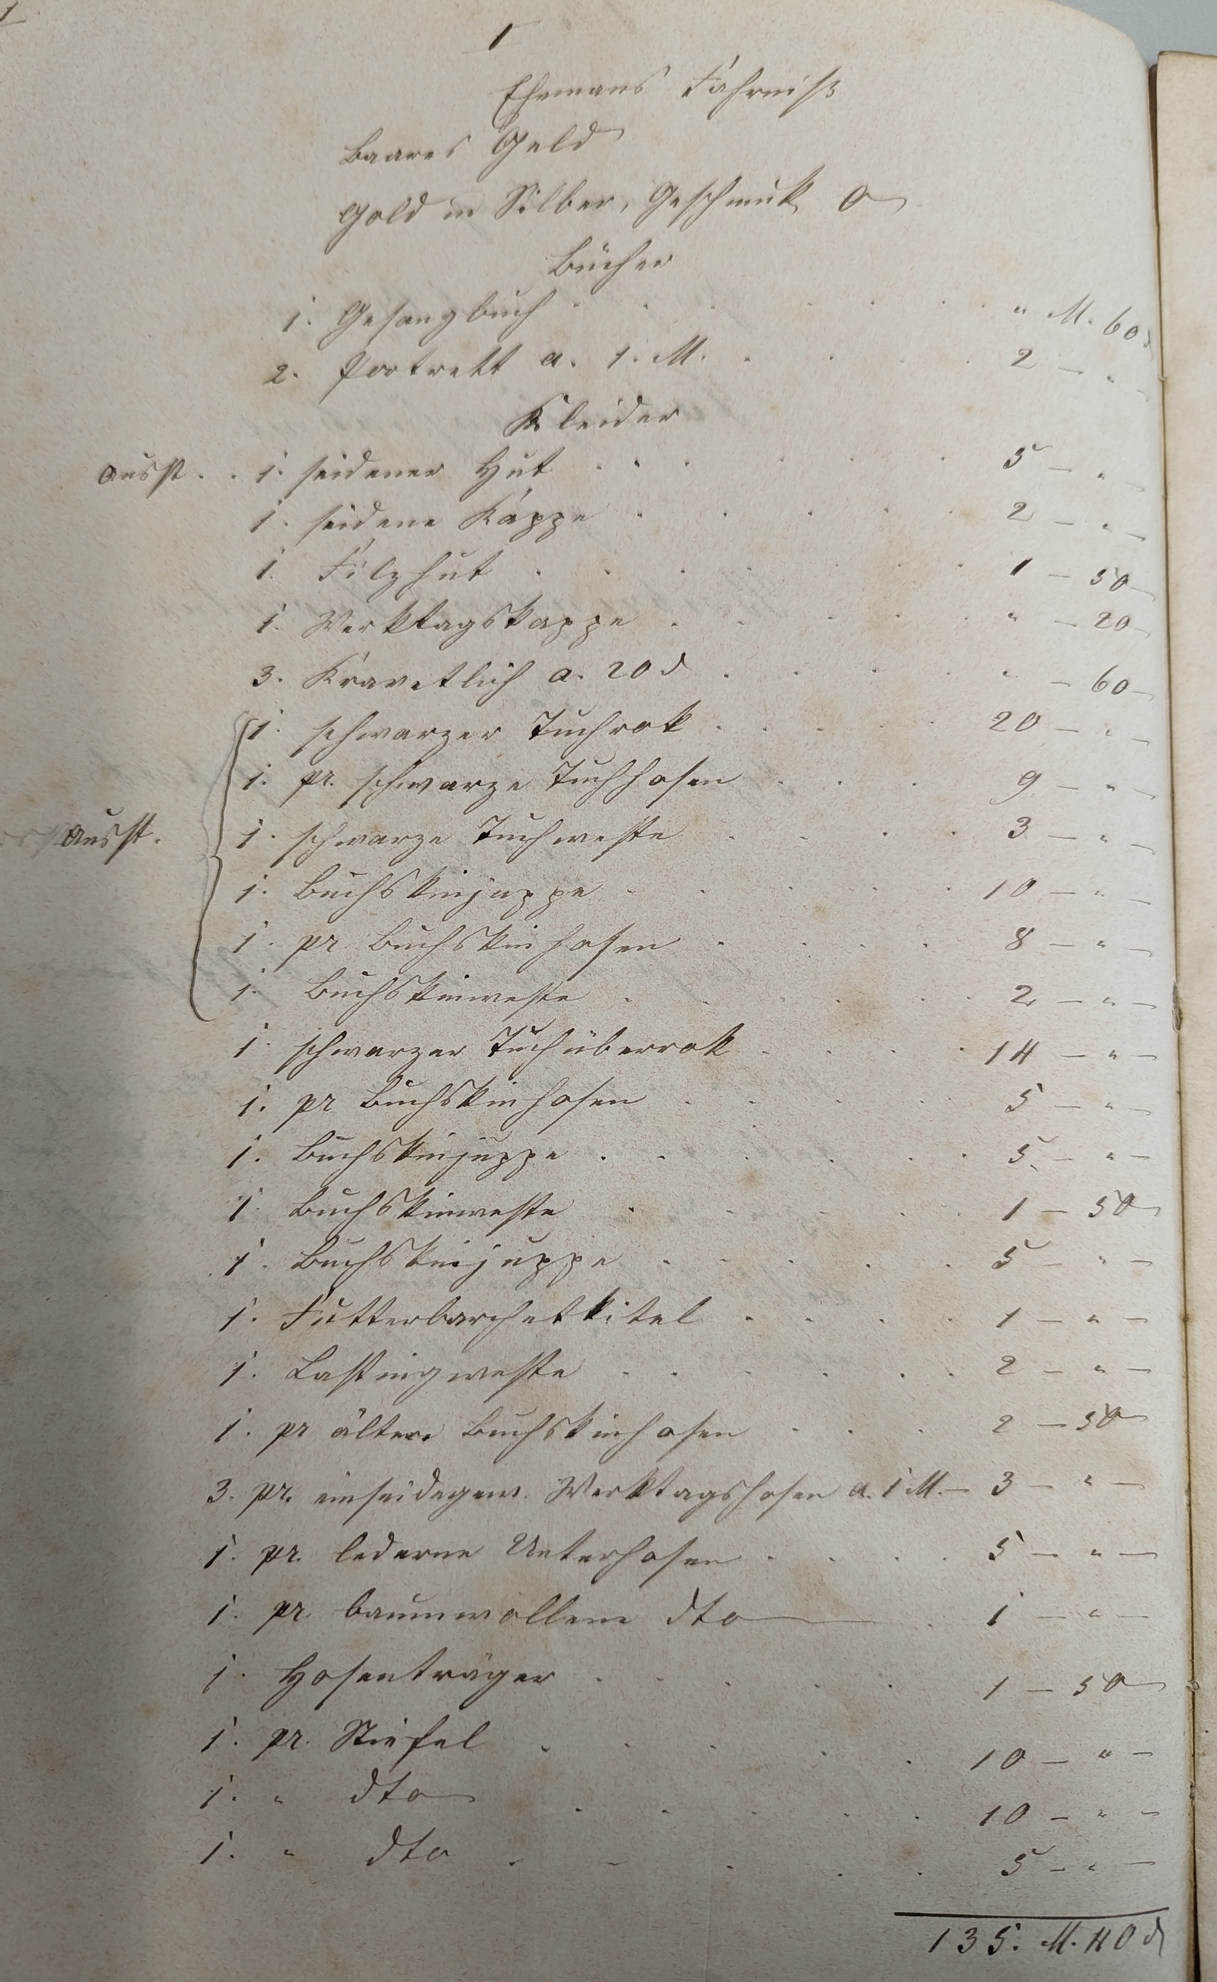 1
Ehemans Fahrniß
Baares Geld
Gold u Silber, Geschmuk 0
Bücher
1. Gesangbuch . . . . . " M. 60 d
2. Portrett a. 1. M. . . . . 2 — " —
Kleider
Ausst. . . 1. seidener Hut . . . . . 5 — " —
1. seidene Kappe . . . . . 2 — " —
1. Filzhut . . . . . 1 — 50
1. Werktagskappe . . . . . " — 20 —
3. Kravetlich a. 20 d . . . . . " — 60 —
1. schwarzer Tuchrok . . . . . 20 — " —
1. pr. schwarze Tuchhosen . . . 9 — " —
Ausst. 1. schwarze Tuchweste . . . . 3 — " —
1. Buchskinjuppe . . . . . 10 — " —
1. pr. Buchskinhosen . . . . . 8 — " —
1. Buchskinweste . . . . . 2 — " —
1. schwarzer Tuchüberrok . . . . 14 — " —
1. pr Buchskinhosen . . . . . 5 — " —
1. Buchskinjuppe . . . . . 5 — " —
1. Buchskinweste . . . . . 1 — 50
1. Buchskinjuppe . . . . . 5 — " —
1. Futterbarchetkitel . . . . 1 — " —
1. Lastingweste . . . . . 2 — " —
1. pr ältere Buchskinhosen . . . 2 — 50
3. pr. Werktagshosen a. 1 M. — 3 — " —
1. pr. lederne Unterhosen . . . . 5 — " —
1. pr. baumwollene dto . 1 — " —
1. Hosenträger . . . . . 1 — 50
1. pr. Stiefel . . . . . 10 — " —
1. " dto . . . . . 10 — " —
1. " dto . . . . . 5 — " —
135. M. 40 d